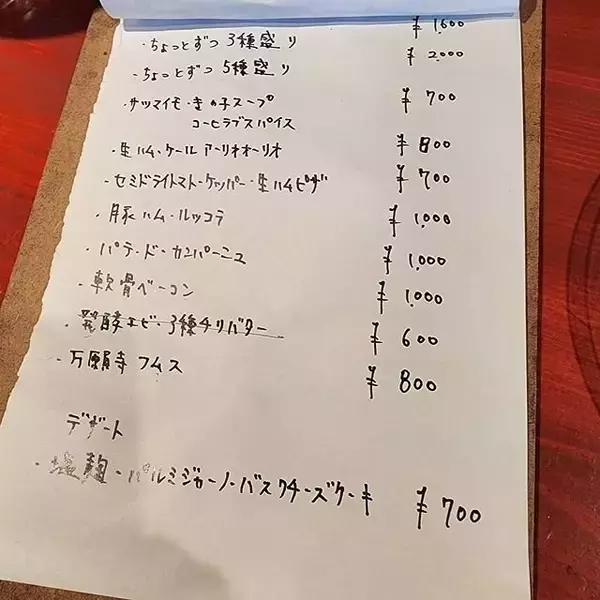 ・ちょっとずつ 3種盛り ¥1,600
・ちょっとずつ 5種盛り ¥2,000
・サツマイモ・きの子スープ ¥700
コーヒラブスパイス
・生ハム・ケール アーリオオーリオ ¥800
・セミドライトマト・ケッパー・生ハムピザ ¥700
・豚ハム・ルッコラ ¥1,000
・パテ・ド・カンパーニュ ¥1,000
・軟骨ベーコン ¥1,000
・発酵エビ・3種チリバター ¥600
・万願寺フムス ¥800
デザート
・塩麹・パルミジャーノ・バスクチーズケーキ ¥700